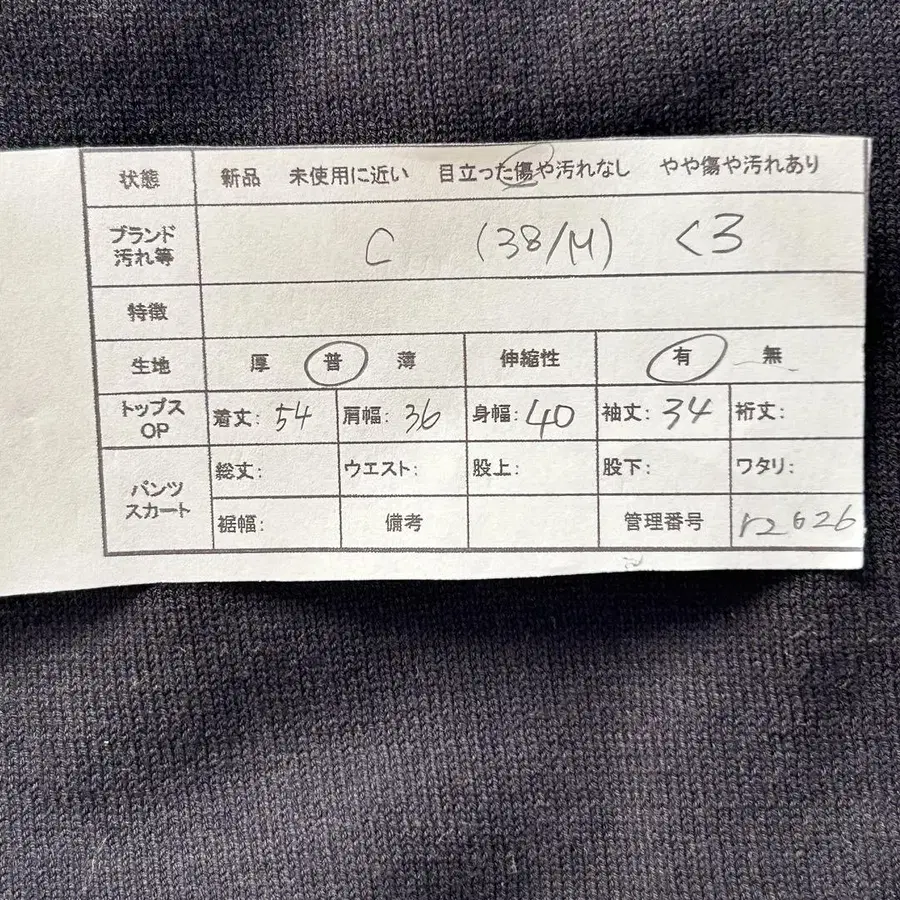 状態 新品 未使用に近い 目立った傷や汚れなし やや傷や汚れあり
ブランド
汚れ等 C (38/M) <3
特徴
生地 厚 普 薄 伸縮性 有 無
トップス
OP 着丈: 54 肩幅: 36 身幅: 40 袖丈: 34 裄丈:
パンツ
スカート 総丈: ウエスト: 股上: 股下: ワタリ:
裾幅: 備考 管理番号 r2626